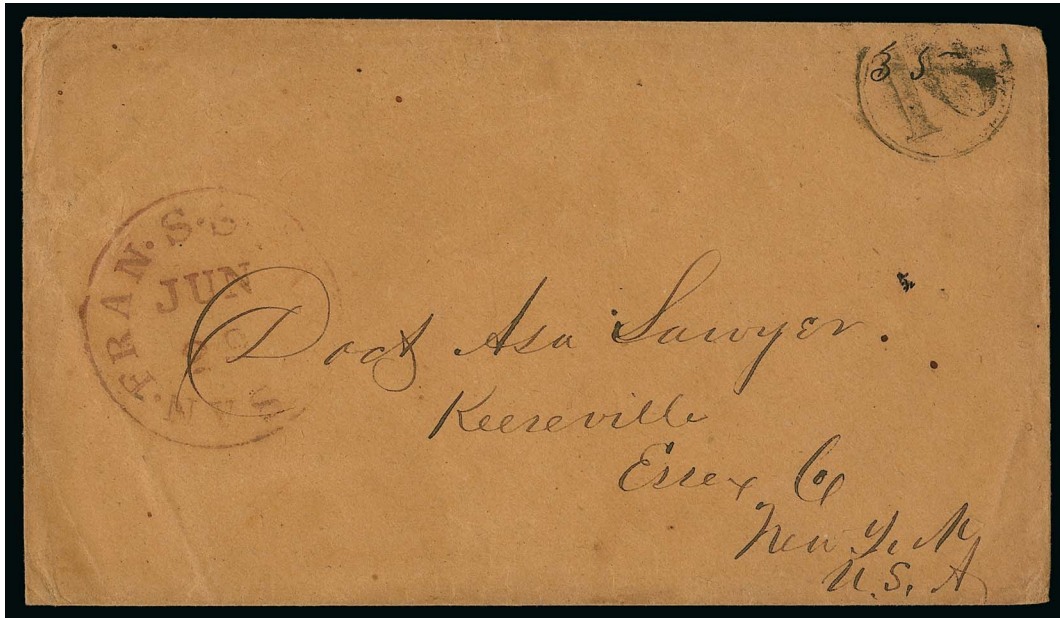 35
SAN. FRAN. S. S.
JUN
Doct Asa Sawyer.
Keeseville
Essex Co
New York
U.S.A